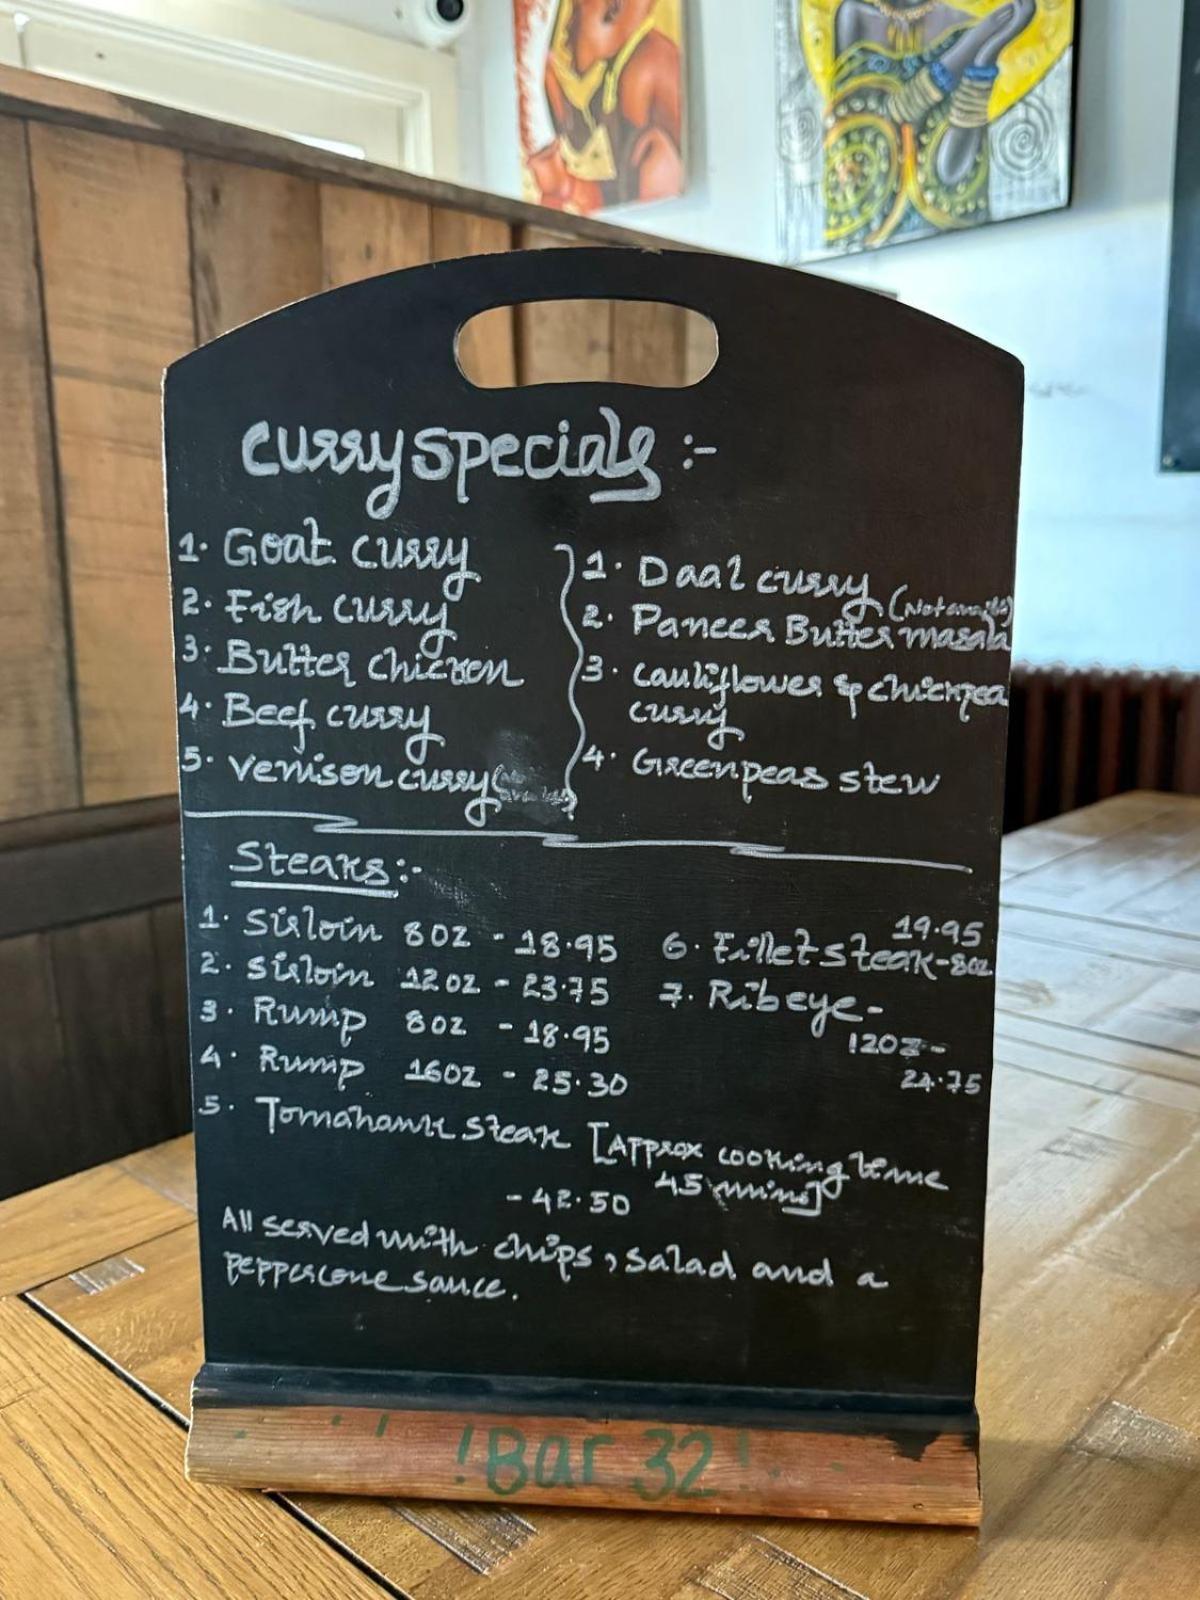 curry specials :-
1. Goat curry
2. Fish curry
3. Butter chicken
4. Beef curry
5. venison curry
1. Daal curry
2. Paneer Butter masala
3. cauliflower & chickpea
curry
4. Greenpeas stew
Steaks:-
1. Sirloin 8oz - 18.95
2. Sirloin 12oz - 23.75
3. Rump 8oz - 18.95
4. Rump 16oz - 25.30
5. Tomahawk steak [Approx cooking time
45 mins]
- 42.50
19.95
6. Fillet steak - 8oz
7. Ribeye -
12oz -
24.75
All served with chips, salad and a
peppercone sauce.
!Bar 32!